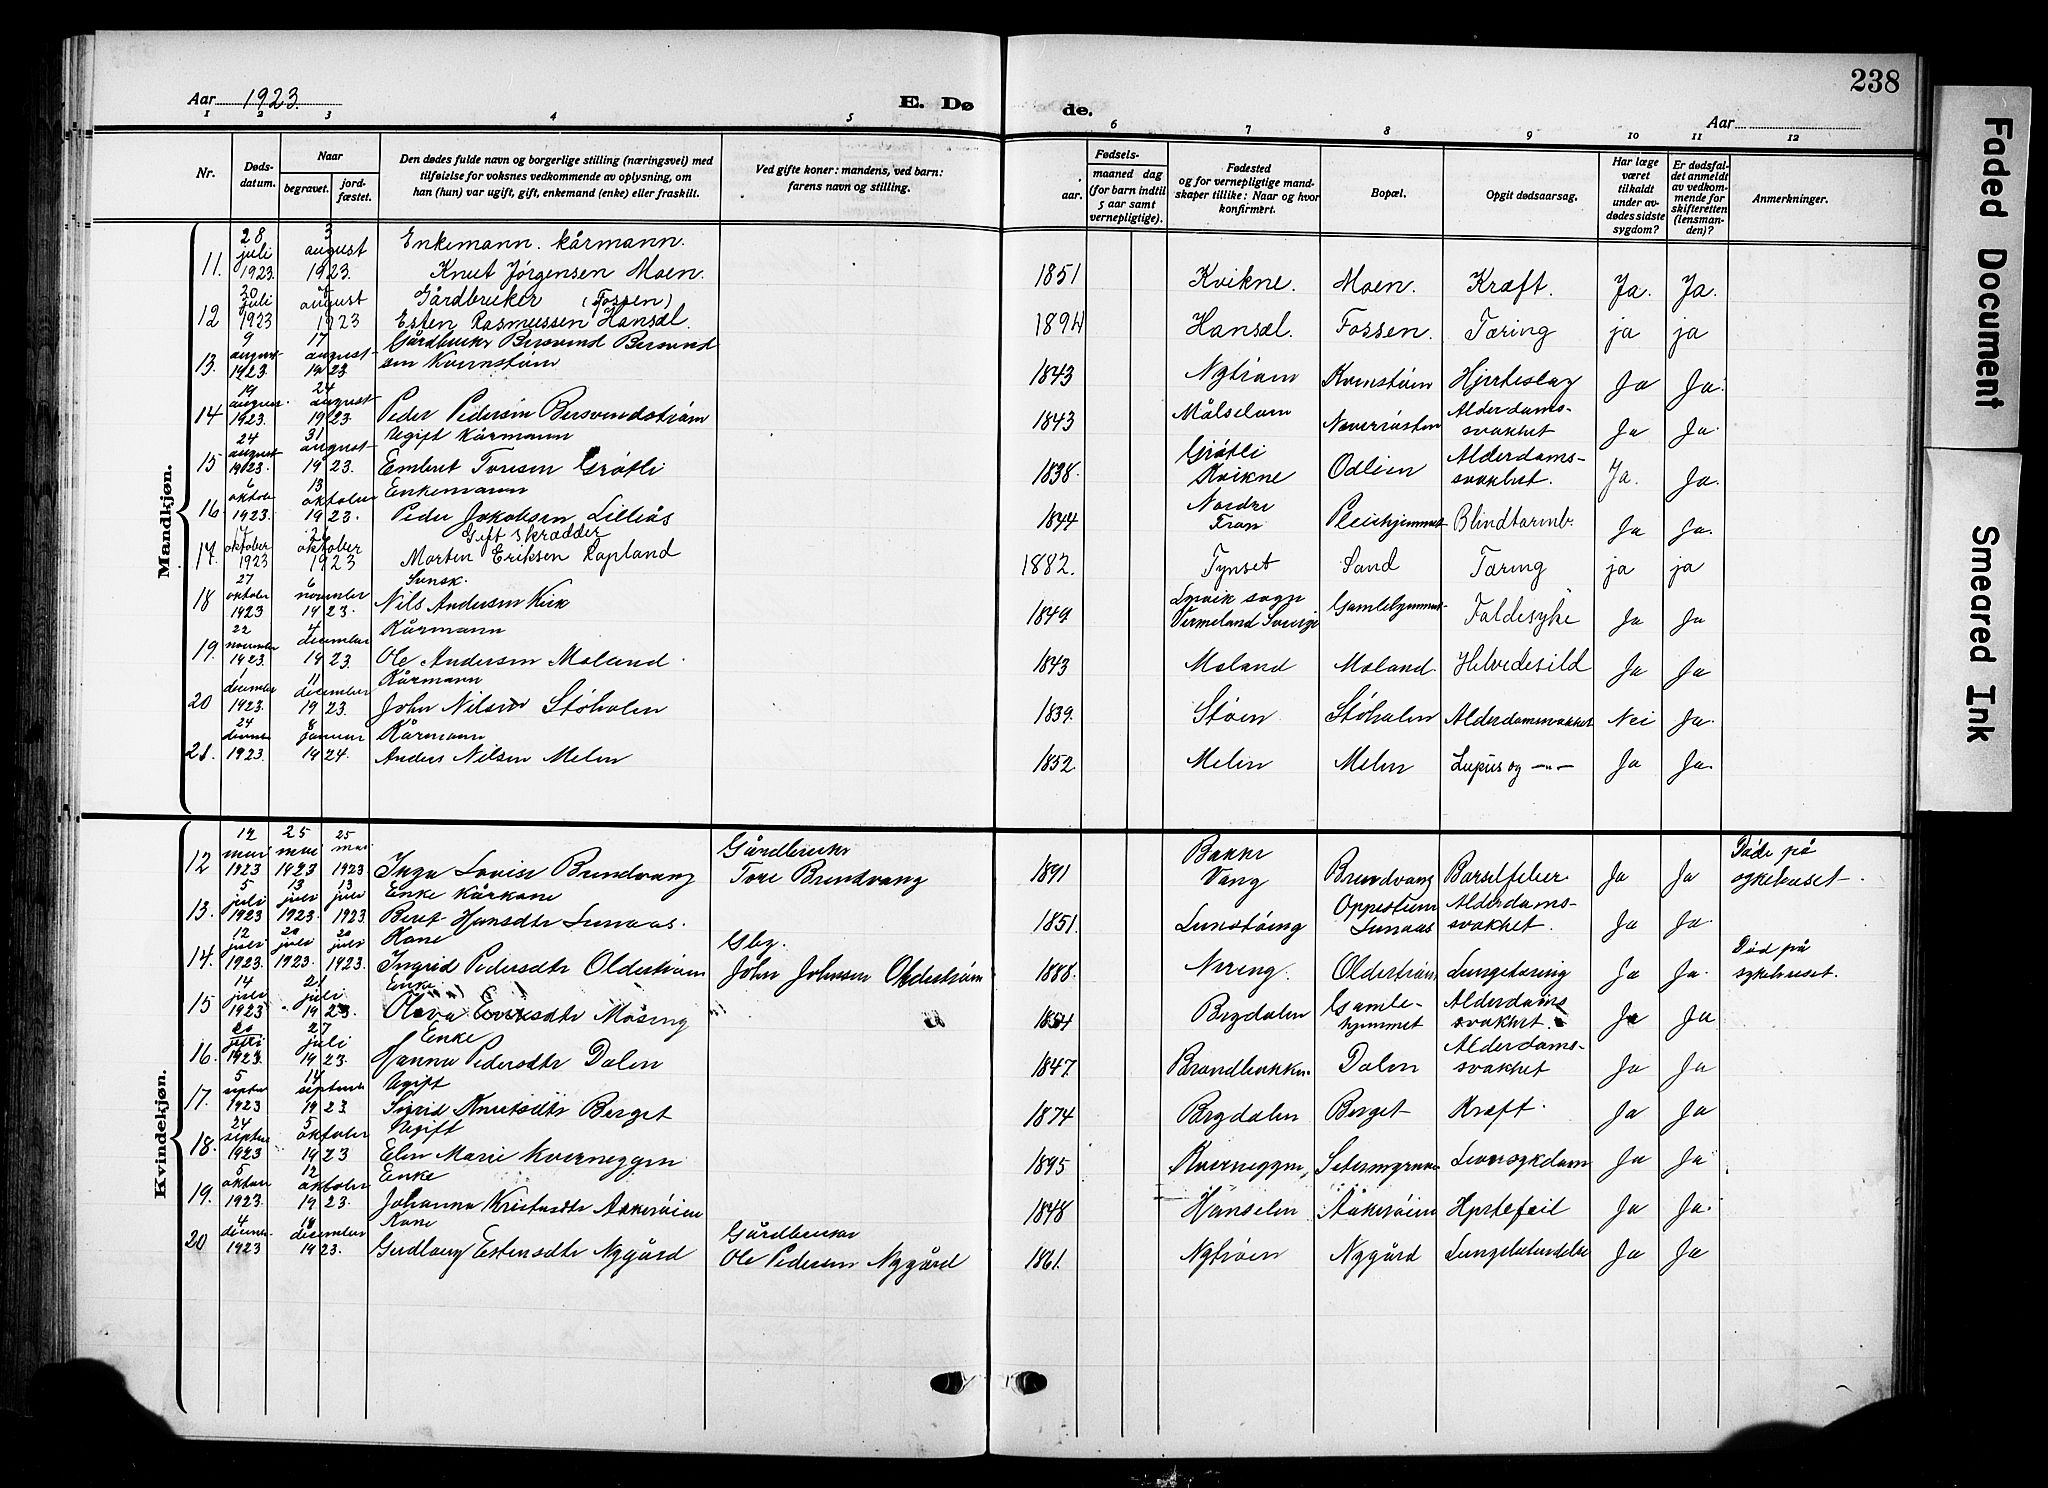 238
Aar 1923.
E. Dø
de.
Aar
1 2 3 4 5 6 7 8 9 10 11 12
Nr.
Døds-
datum.
Naar
begravet.
jord-
fæstet.
Den dødes fulde navn og borgerlige stilling (næringsvei) med
tilføielse for voksnes vedkommende av oplysning, om
han (hun) var ugift, gift, enkemand (enke) eller fraskilt.
Ved gifte koner: mandens, ved barn:
farens navn og stilling.
Fødsels-
aar.
maaned dag
(for barn indtil
5 aar samt
vernepligtige).
Fødested
og for vernepligtige mand-
skaper tillike: Naar og hvor
konfirmert.
Bopæl.
Opgit dødsaarsag.
Har læge
været
tilkaldt
under av-
dødes sidste
sygdom?
Er dødsfal-
det anmeldt
av vedkom-
mende for
skifteretten
(lensman-
den)?
Anmerkninger.
Mandkjøn.
28 3 Enkemann. kårmann.
juli august
11. 1923. 1923. Knut Jørgensen Moen. 1851 Kvikne. Moen. Kræft. Ja. Ja.
20 juli august Gårdbruker (Fossen)
12 1923 1923 Esten Rasmussen Hansæl. 1894 Hansæl. Fossen. Tæring ja ja
9 17 Gårdbruker Bersvend Bersvend
13. august 1923. august 1923. sen Kvernstrøm 1843 Nytrøen Kvernstrøm Hjerteslag Ja Ja.
19 24
14 august 1923. august 1923 Peder Pedersen Bersvendstrøm 1843 Målselven Alderdoms-
svakhet Ja Ja.
24 31 Ugift Kårmann
15 august 1923. august 1923. Embret Toresen Grøtli 1838. Grøtli
Kvikne Odlien Alderdoms-
svakhet. Ja. Ja.
6 13 Enkemann
16 oktober 1923. oktober 1923. Peder Jakobsen Lilleås 1844 Nordre
Fron Pleiehjemmet Blindtarmb. Ja Ja.
Gift Skrædder
17. oktober 1923 oktober 1923 Morten Eriksen Rapland 1882. Tynset Sand Tæring ja ja
27 6 Svensk.
18 oktober 1923 november 1923. Nils Andersen Kirk 1849 sogn
Vermeland Sverige Gamlehjemmet Faldesyke Ja Ja
22 4 Kårmann
19. november 1923. december 1923. Ole Andersen Moland. 1843 Moland Moland. Helvedesild Ja Ja
1 11 Kårmann
20 december 1923. december 1923. John Nilsen Støholen 1839. Støen Støholen Alderdomssvakhet Nei Ja.
24 8 Kårmann
21. decembe 1923. januar 1924. Anders Nilsen Melen 1852 Melen Melen Lupus og —"— Ja Ja.
Kvindekjøn.
25 25 Gårdbruker Bakke Døde på
12 mai 1923 mai 1923 mai 1923 Inga Lovise Brendvang Tore Brendvang 1891 Vang Brendvang Barselfeber Ja Ja sykehuset.
5 13 13 Enke Kårkone
13. juli 1923 juli 1923. juli 1923 Beret Hansdtr Lunaas. 1851. Lunstøing Lunaas Alderdoms-
svakhet. Ja Ja.
12 20 20 Kone Gbr. Død på
14. juli 1923. juli 1923. juli 1923. Ingrid Pedersdtr Olderstrøm John Johnsen Olderstrøm 1888. Nering. Olderstrøm Lungetæring Ja Ja. sykehuset.
14 21 Enke
15 juli 1923 juli 1923 Olava Mosing Bygdalen Gamle-
hjemmet Alderdoms
svakhet. Ja Ja
20 27 Enke
16 juli 1923. juli 1923. Hanna Pedersdtr Dalen 1847. Brandbakken Dalen Alderdoms-
svakhet Ja Ja
5 14 Ugift
17. septbr 1923 september 1923 Sigrid Knutsdtr Berget 1874 Bygdalen Berget Kræft. Ja Ja
24 5 Ugift
18. septem 1923 oktober 1923 Elen Marie Kverneggen 1895 Kverneggen, Setermyrene Leversykdom Ja Ja
5 12 Enke
19. oktober 1923. oktober 1923. Johanna Kristensdtr Aakerøien 1848 Hanselen Aakerøien Hjertefeil Ja Ja.
4 18 Kone Gårdbruker
20 decemb. 1923 december 1923. Gudborg Estensdtr Nygård Ole Pedersen Nygård 1861. Nytrøen Nygård Lungebetendelse Ja Ja
Faded Document
Smeared Ink